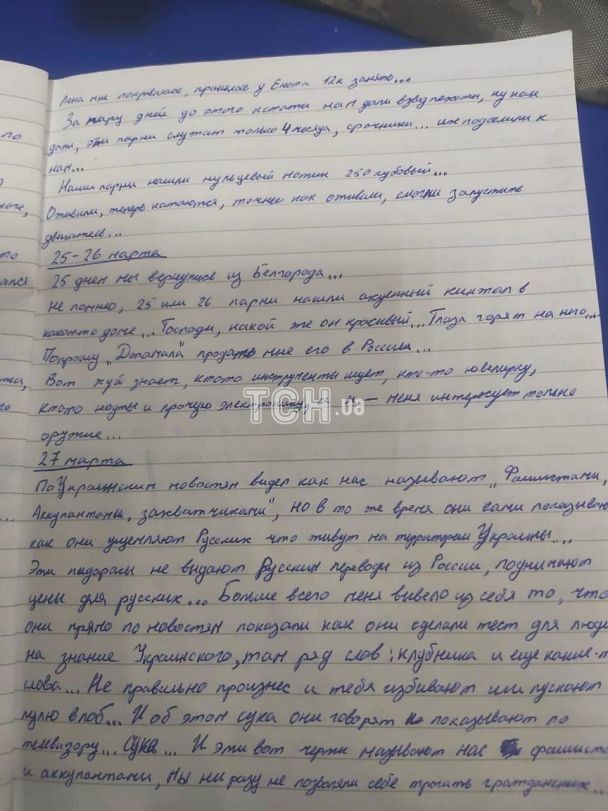 по
Лена мне понравилась, пришлось у Енота 12к занять...
За пару дней до этого кстати нам дали взвод пехоты, ну как
дали, эти парни служат только 4 месяца, срочники... их подселили к
нам...
Наши парни нашли нулецевый мотик 250 кубовый...
Оживили, теперь катаются, точнее как оживили, смогли запустить
двигатель...
25-26 марта
25 днем мы вернулись из Белгорода...
Не помню, 25 или 26 парни нашли ахуенный кинжал в
каком-то доме... Господи, какой же он красивый... Глаза горят на него...
Попрошу "Джамала" продать мне его в России...
Вот хуй знает, ктото инструменты ищет, кто-то ювелирку,
ктото ноуты и прочую электронику, — меня интересует только
оружие...
ТСН.ua
27 марта
По Украинским новостям видел как нас называют "Фашистами,
Аккупантами, захватчиками", но в то же время они сами показываю
как они ущемляют Русских что живут на территории Украины...
Эти пидорасы не выдают Русским переводы из России, поднимают
цены для русских... Больше всего меня вывело из себя то, что
они прямо по новостям показали как они сделали тест для люде
на знание Украинского, там ряд слов: клубника и еще какие-т
слова... Не правильно произнес и тебя избивают или пускают
пулю в лоб... И об этом сука они говорят показывают по
телевизору... Сука... И эти вот черти называют нас фашиста
и аккупантами, мы ни разу не позволяли себе трогать гражданских...